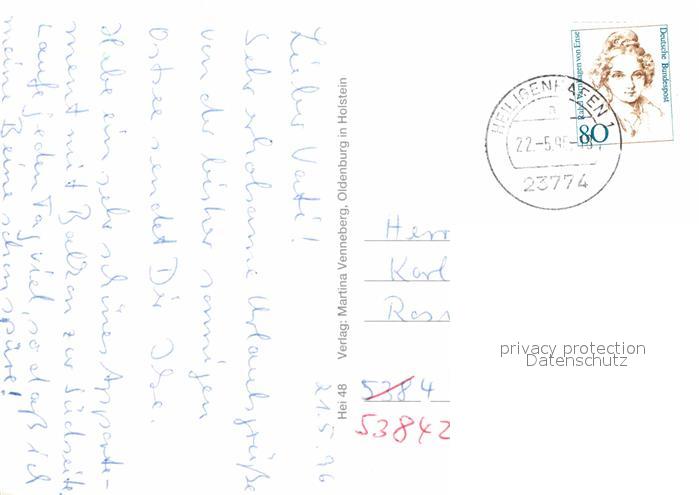 21.5.96
Lieber Vati!
Sehr erholsame Urlaubsgrüße
von der bisher sonnigen
Ostsee sendet Dir Ilse.
Habe ein sehr schönes Apparte-
ment mit Balkon zur Südseite.
Laufe jeden Tag viel, so daß ich
meine Beine schon spüre!
Hei 48 Verlag: Martina Venneberg, Oldenburg in Holstein
Deutsche Bundespost
Rahel Varnhagen von Ense
80
HEILIGENHAFEN 1
a
22.-5.96
23774
Herr
Karl
5384
53842
privacy protection
Datenschutz